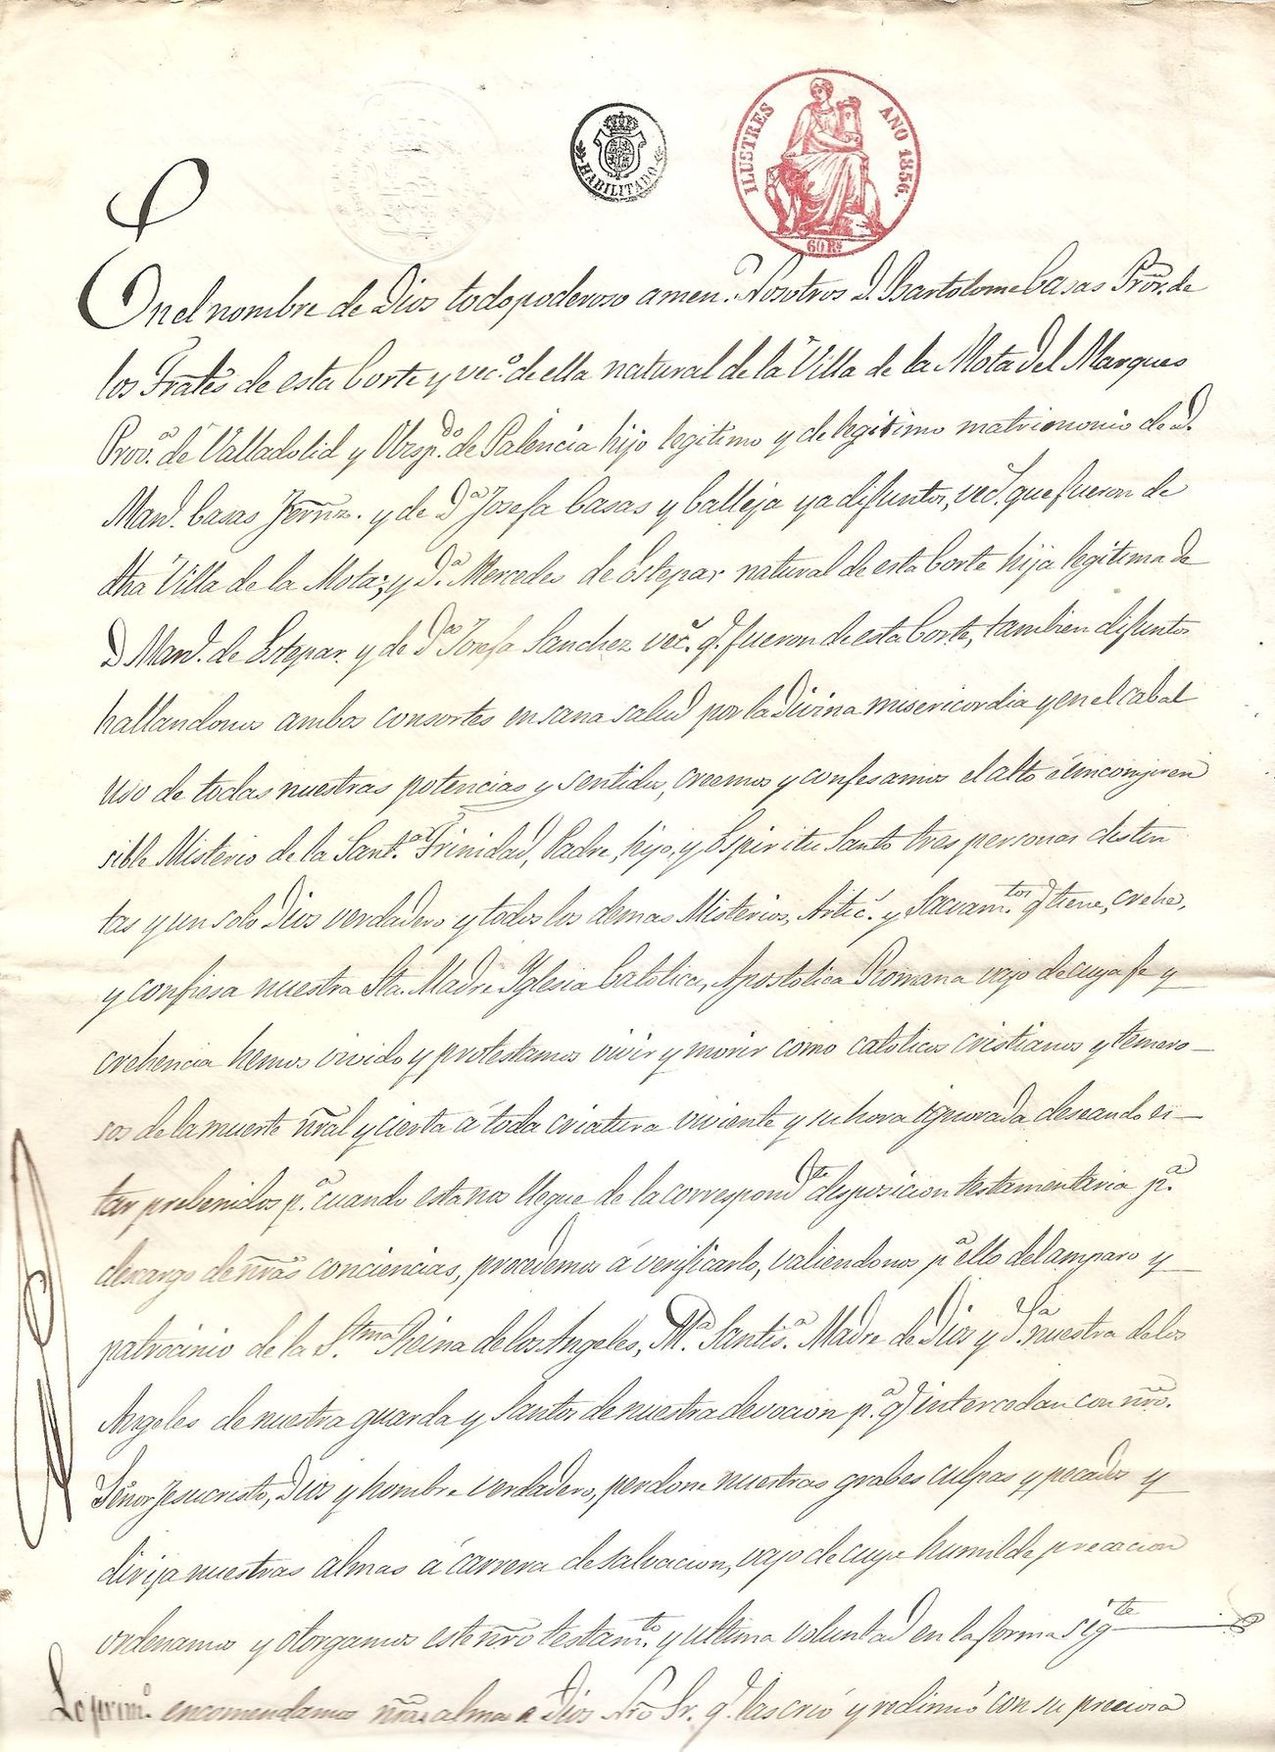 ILUSTRES AÑO 1856.
60 Rs
HABILITADO
En el nombre de Dios todopoderoso amen. Nosotros D. Bartolome Casas Pror. de
los Trales de esta Corte y vec.º de ella natural de la Villa de la Mota del Marques
Prov.ª de Valladolid y Obisp.do de Palencia hijo legitimo y de legitimo matrimonio de D.
Man.l Casas Fernz. y de D.ª Josefa Casas y Calleja ya difuntos, vec.s que fueron de
dha Villa de la Mota; y D.ª Mercedes de Estepar natural de esta Corte hija legitima de
D Man.l de Estepar y de D.ª Josefa Sanchez vec.s q.e fueron de esta Corte, tambien difuntos
hallandonos ambos consortes en sana salud por la Divina misericordia y en el cabal
uso de todas nuestras potencias y sentidos, creemos y confesamos el alto é incompren
sible Misterio de la Sant.ª Trinidad, Padre, hijo, y Espiritu Santo tres personas distin
tas y un solo Dios verdadero y todos los demas Misterios, Artic.s y Sacram.tos q.e tiene, crehe,
y confiesa nuestra Sta. Madre Yglesia Catolica, Apostolica Romana vajo de cuya fe y
crehencia hemos vivido y protestamos vivir y morir como catolicos cristianos y temero-
sos de la muerte nral y cierta á toda criatura viviente y su hora ignorada deseando es-
tar prebenidos p.ª cuando esta nos llegue de la correspond.te disposicion testamentaria p.ª
descargo de nras conciencias, procedemos á verificarlo, valiendonos p.ª ello del amparo y
patrocinio de la S.tma Reina de los Angeles, M.ª Santis.ª Madre de Dios y S.ra nuestra de los
Angeles de nuestra guarda y Santos de nuestra devocion p.ª q.e intercedan con nro.
Señor Jesucristo, Dios y hombre verdadero, perdone nuestras grabes culpas y pecados y
dirija nuestras almas á carrera de salvacion, vajo de cuya humilde precacion
ordenamos y otorgamos este nro testam.to y ultima voluntad en la forma sig.te
Lo prim.º encomendamos nras almas a Dios Nro Sr. q.e las crió y redimió con su preciosa